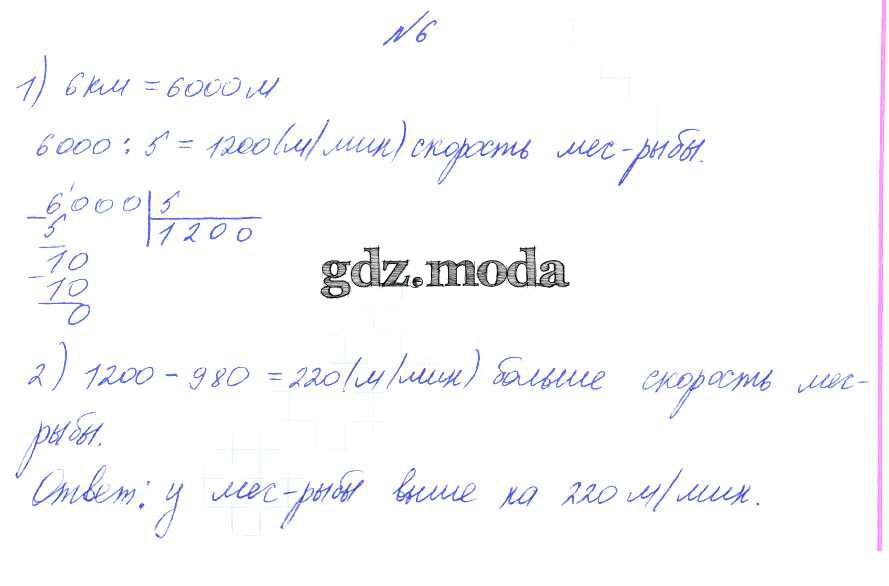 №6
1) 6км = 6000м
6000 : 5 = 1200 (м/мин) скорость меч-рыбы.
6000 | 5
5 | 1200
10
10
0
gdz.moda
2) 1200 - 980 = 220 (м/мин) больше скорость меч-
рыбы.
Ответ: у меч-рыбы выше на 220 м/мин.